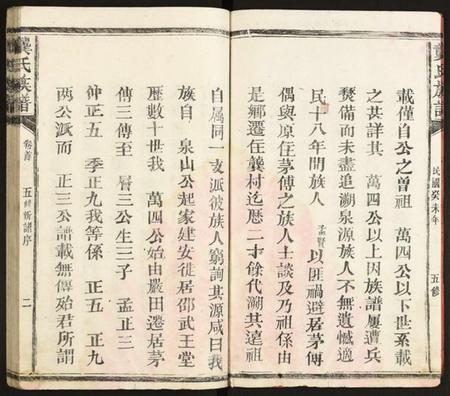 龔氏族譜
民國癸未年
五修
載僅自公之曾祖 萬四公以下世系載
之甚詳其 萬四公以上因族譜屢遭兵
燹備而未盡追溯泉源族人不無遺憾適
民十八年間族人 孟賢 以匪禍避居茅傅
偶與原住茅傅之族人士談及乃祖係由
是鄉遷在龔村迄歷二十餘代溯其遠祖
自屬同一支派彼族人窮詢其源咸曰我
族自 泉山公起家建安徙居邵武王堂
歷數十世我 萬四公始由嚴田遷居茅
傅三傳至 層三公生三子 孟正三
仲正五 季正九我等係 正五 正九
兩公派而 正三公譜載無傳殆君所謂
龔氏族譜
卷首
五修新譜序
二